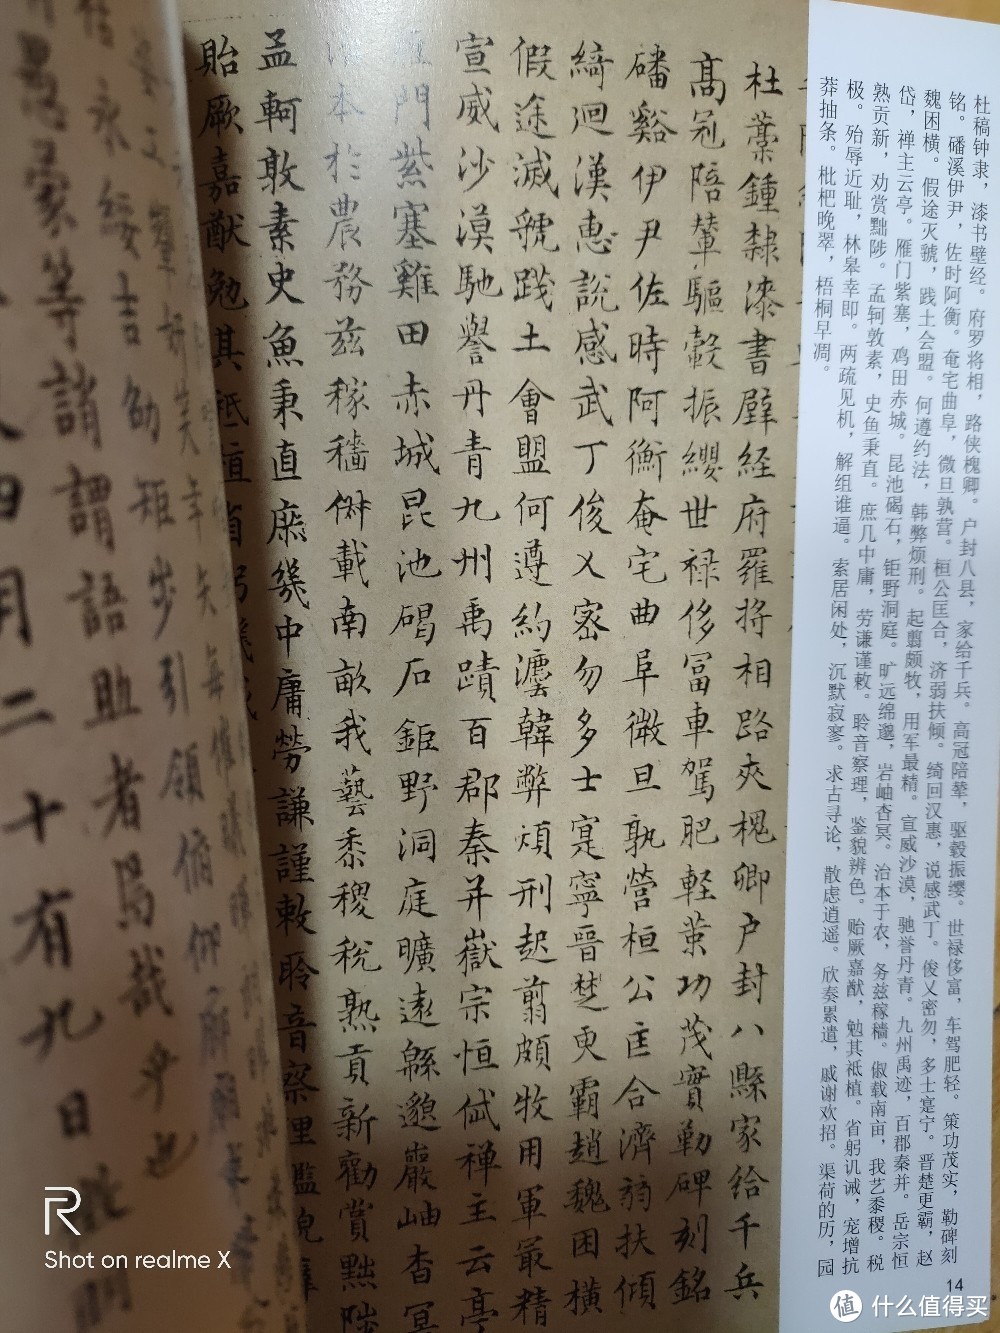 杜稿钟隶，漆书壁经。府罗将相，路侠槐卿。户封八县，家给千兵。高冠陪辇，驱毂振缨。世禄侈富，车驾肥轻。策功茂实，勒碑刻
铭。磻溪伊尹，佐时阿衡。奄宅曲阜，微旦孰营。桓公匡合，济弱扶倾。绮回汉惠，说感武丁。俊乂密勿，多士寔宁。晋楚更霸，赵
魏困横。假途灭虢，践土会盟。何遵约法，韩弊烦刑。起翦颇牧，用军最精。宣威沙漠，驰誉丹青。九州禹迹，百郡秦并。岳宗恒
岱，禅主云亭。雁门紫塞，鸡田赤城。昆池碣石，钜野洞庭。旷远绵邈，岩岫杳冥。治本于农，务兹稼穑。俶载南亩，我艺黍稷。税
熟贡新，劝赏黜陟。孟轲敦素，史鱼秉直。庶几中庸，劳谦谨敕。聆音察理，鉴貌辨色。贻厥嘉猷，勉其祗植。省躬讥诫，宠增抗
极。殆辱近耻，林皋幸即。两疏见机，解组谁逼。索居闲处，沉默寂寥。求古寻论，散虑逍遥。欣奏累遣，戚谢欢招。渠荷的历，园
莽抽条。枇杷晚翠，梧桐早凋。
14
杜稾鍾隸漆書壁経府羅将相路夾槐卿户封八縣家給千兵
髙冠陪輦驅轂振纓世禄侈冨車駕肥軽策功茂實勒碑刻銘
磻谿伊尹佐時阿衡奄宅曲阜微旦孰營桓公匡合濟弱扶傾
綺迴漢惠説感武丁俊乂密勿多士寔寧晉楚更霸趙魏困横
假途滅虢踐土會盟何遵約灋韓弊煩刑起翦頗牧用軍冣精
宣威沙漠馳譽丹青九州禹蹟百郡秦并嶽宗恒岱禅主云亭
門紫塞雞田赤城昆池碣石鉅野洞庭曠遠緜邈巖岫杳冥
本於農務兹稼穡俶載南畝我藝黍稷税熟貢新勸賞黜陟
孟軻敦素史魚秉直庶幾中庸勞謙謹敕聆音察理
貽厥嘉猷勉其祗植省躬
矩步引領俯仰廊廟
永綏吉劭
愚蒙等誚謂語助者焉哉乎也
四月二十有九日
Shot on realme X
值 什么值得买